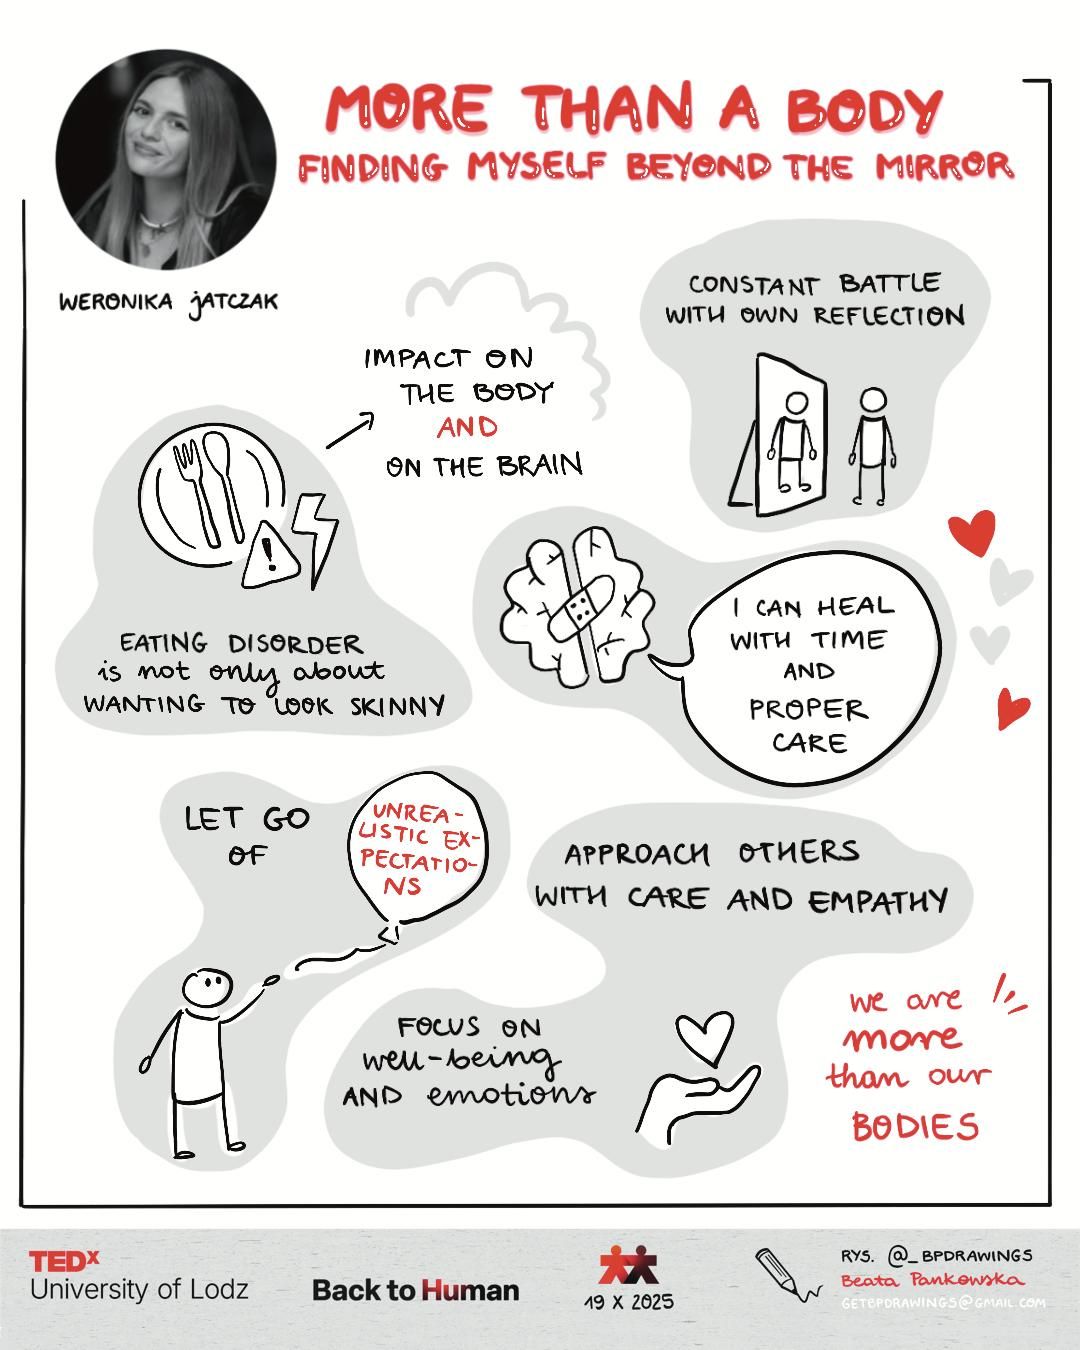 MORE THAN A BODY
FINDING MYSELF BEYOND THE MIRROR
WERONIKA jATCZAK
CONSTANT BATTLE
WITH OWN REFLECTION
IMPACT ON
THE BODY
AND
ON THE BRAIN
!
EATING DISORDER
is not only about
WANTING TO LOOK SKINNY
I CAN HEAL
WITH TIME
AND
PROPER
CARE
LET GO
OF
UNREA-
LISTIC EX-
PECTATIO-
NS
APPROACH OTHERS
WITH CARE AND EMPATHY
FOCUS ON
well-being
AND emotions
we are
more
than our
BODIES
TEDx
University of Lodz
Back to Human
19 X 2025
RYS. @_BPDRAWINGS
Beata Pankowska
GETBPDRAWINGS@GMAIL.COM